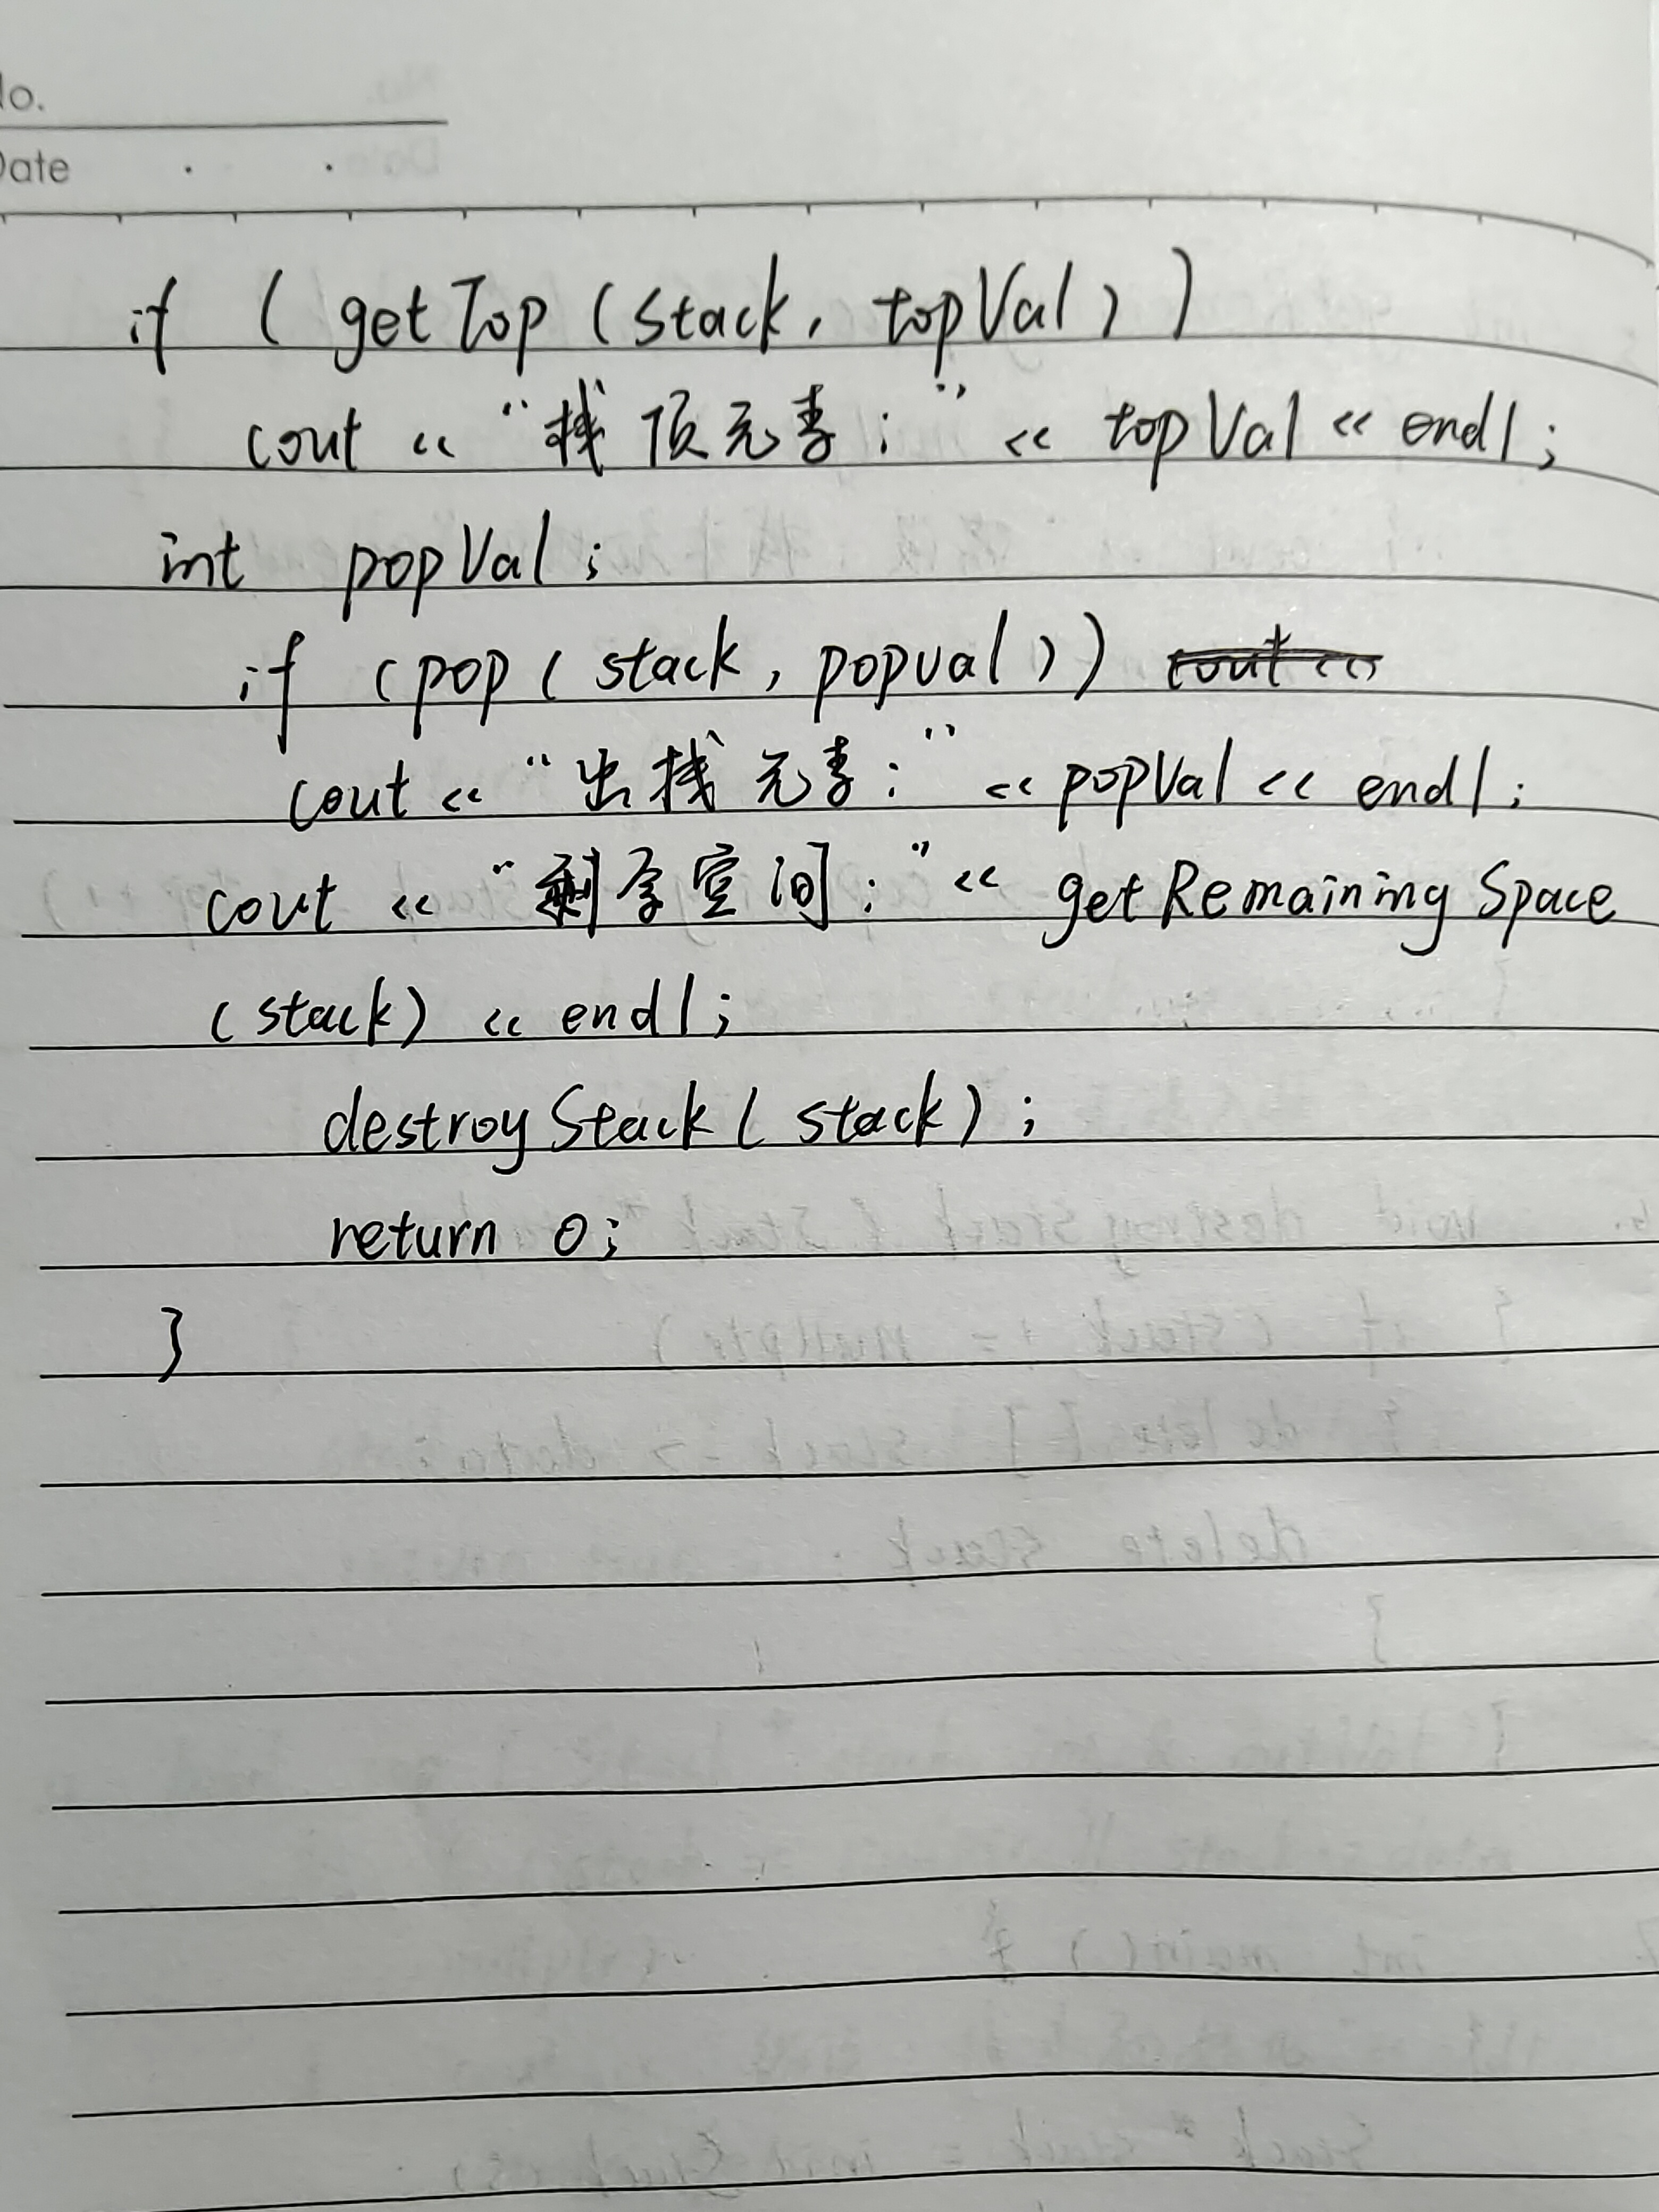 No.
Date
if (getTop(stack, topVal))
cout << "栈顶元素:" << topVal << endl;
int popVal;
if (pop(stack, popval)) cout <<
cout << "出栈元素:" << popVal << endl;
cout << "剩余空间:" << getRemainingSpace
(stack) << endl;
destroyStack(stack);
return 0;
}